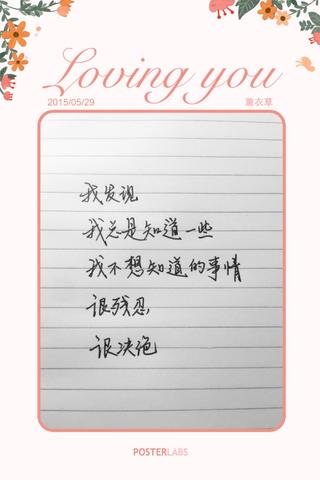 Loving you
2015/05/29 薰衣草
我发现
我总是知道一些
我不想知道的事情
很残忍,
很决绝
POSTERLABS